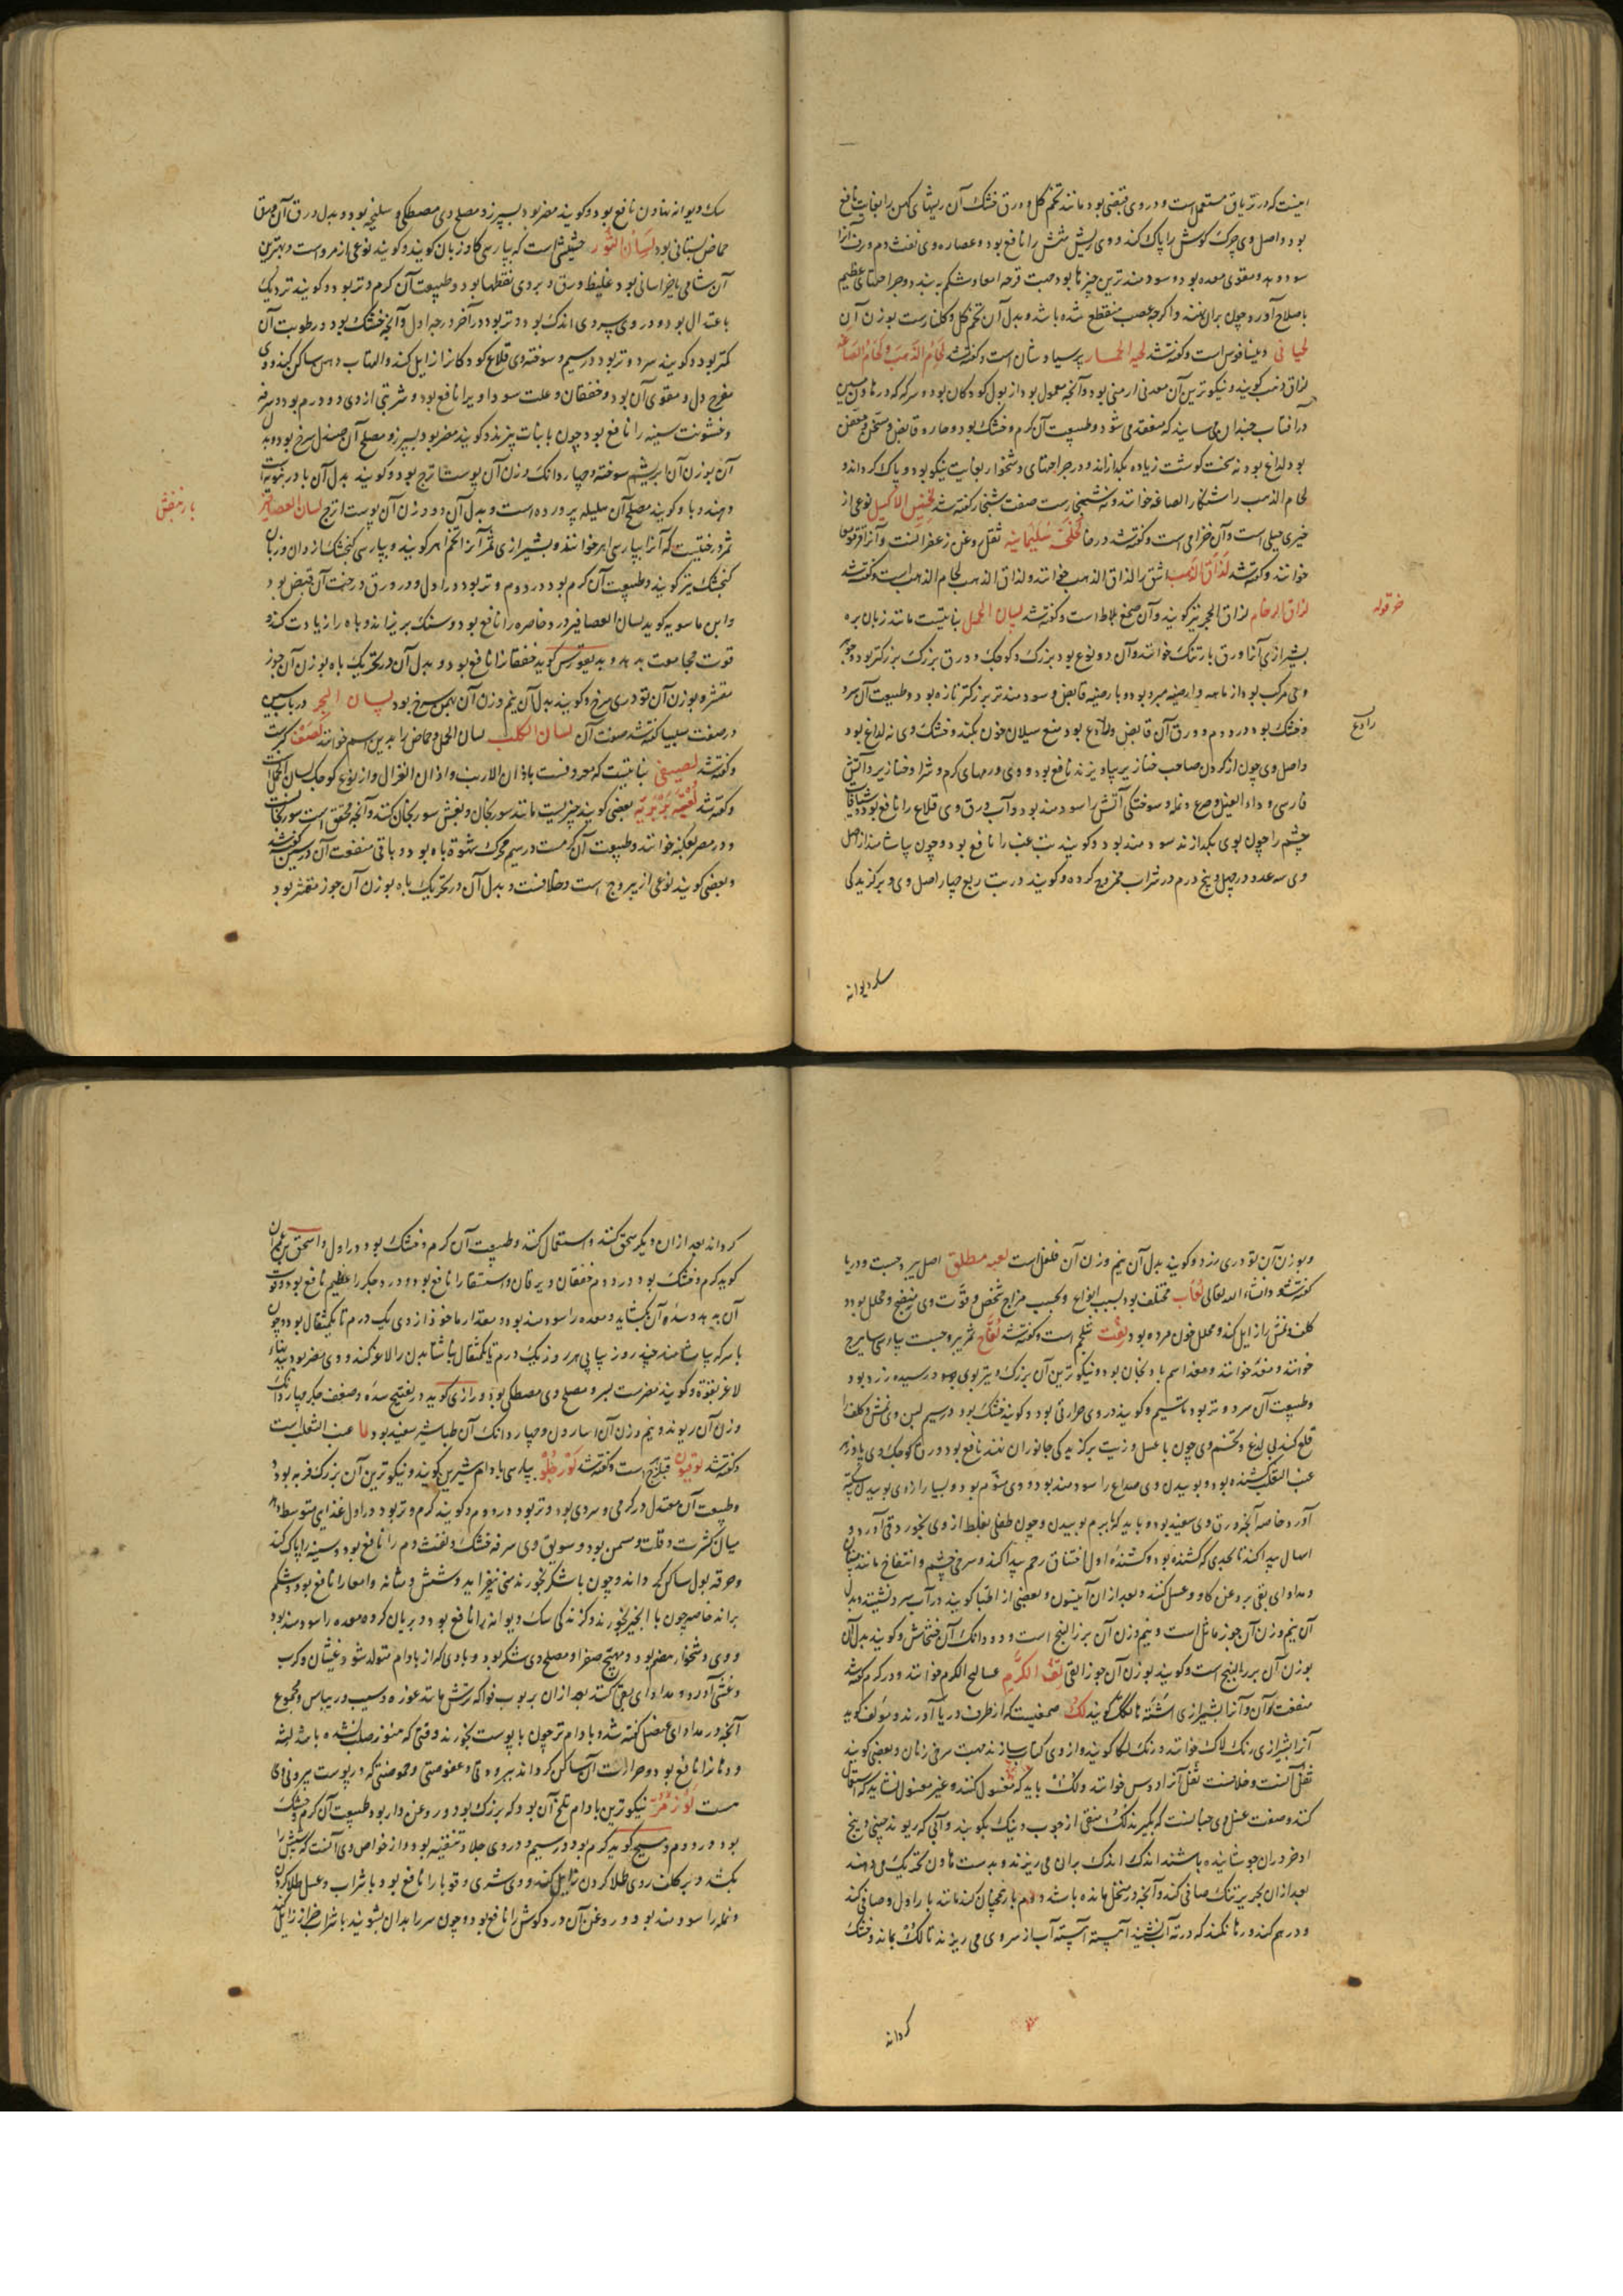 اینست که در تریاق مستعمل است و در وی قبضی بود مانند تخم گل و ورق خشک آن ریشهای کهن را بغایت نافع
بود و اصل وی چرک گوش را پاک کند و وی ریش شش را نافع بود و عصاره وی نفث دم و رفتن آنرا
سود دهد و مقوی معده بود و سودمندترین چیزها بود جهت قرحه امعا و شکم ببندد و جراحتهای عظیم
باصلاح آورد چون بران نهند و اگرچه عصب منقطع شده باشد و بدل آن تخم گل و گلنارست بوزن آن
لحیانی و بینافوس است و گفته شد لحیة الحمار پرسیاوشان است و گفته شد لحام الذهب و لحام الصاغه
لزاق ذهب گویند و نیکوترین آن معدنی ارمنی بود و آنچه معمول بود از بول کودکان بود و سرکه که در هاون مسین
در آفتاب چندان می سایند که منعقد می شود و طبیعت آن گرم و خشک بود و حاره قابض و مسخن و معفن
بود لداغ بود نه سخت گوشت زیاده بگدازاند و در جراحتهای دشخوار بغایت نیکو بود و پاک گرداند و
لحام الذهب را شنکار الصاغه خوانند و نه شنجارست صفت شنجار گفته شد لخنیس الاکلیل نوعی از
خیری جبلی است و آن خزامی است و گفته شد در خا لخلخه سلیمانیه ثقل روغن زعفرانست و آنرا قرقومعما
خوانند و گفته شد لذاق الذهب اشق را لذاق الذهب خوانند و لذاق الذهب لحام الذهب است و گفته شد
لزاق الرخام لزاق الحجر نیز گویند و آن صمغ بلاط است و گفته شد لسان الحمل نباتیست مانند زبان بره
بشیرازی آنرا ورق بارتنک خوانند و آن دو نوع بود بزرگ و کوچک و ورق بزرگ بزرگتر بود و جوهر
وی مرکب بود از مائیه و ارضیه مبرد بود و بارضیه قابض و سودمندتر بزرگتر تازه بود و طبیعت آن سرد
و خشک بود در دوم و ورق آن قابض و رادع بود منع سیلان خون بکند و خشک وی نه لداغ بود
و اصل وی چون از گردن صاحب خنازیر بیاویزند نافع بود و وی ورمهای گرم و شرا و خنازیر و آتش
فارسی و داء الفیل و صرع و نمله و سوختگی آتش را سودمند بود و آب ورق وی قلاع را نافع بود و شیافات
چشم را چون بوی بگدازند سودمند بود و گویند تب غب را نافع بود و چون بیاشامند از اصل
وی سه عدد در چهل و پنج درم در شراب ممزوج کرده و گویند در تب ربع چهار اصل وی و برگزیدگی
خرقوله
رادع
سک دیوانه
سک دیوانه نهادن نافع بود و گویند مضر بود بسپرز و مصلح وی مصطکی و سلیخه بود و بدل ورق آن ورق
حماض بستانی بود لسان الثور حشیشی است که بپارسی گاوزبان گویند و گویند نوعی از مرو است و بهترین
آن شامی یا خراسانی بود و غلیظ ورق و بروی نقطها بود و طبیعت آن گرم و تر بود و گویند نزدیک
باعتدال بود و در وی سردی اندک بود و تر بود در آخر درجه اول و آنچه خشک بود در رطوبت آن
کمتر بود و گویند سرد و تر بود در سیم و سوخته وی قلاع کودکانرا زایل کند و التهاب دهن ساکن کند و وی
مفرح دل و مقوی آن بود و خفقان و علت سوداوی را نافع بود و شربتی از وی دو درم بود و سرفه
و خشونت سینه را نافع بود چون با نبات پزند و گویند مضر بود بسپرز و مصلح آن صندل سرخ بود و بدل
آن بوزن آن ابریشم سوخته و چهار دانک وزن آن پوست اترج بود و گویند بدل آن بادرنجبویه است
دهند و با و گویند مصلح آن هلیله پرورده است و بدل آن دو وزن آن پوست اترج لسان العصافیر
ثمر درختیست که آنرا بپارسی اهر خوانند و بشیرازی ثمر آنرا تخم اهر گویند و بپارسی گنجشک زوان و زبان
گنجشک نیز گویند و طبیعت آن گرم بود در دوم و تر بود در اول و در ورق درخت آن قبض بود
و ابن ماسویه گوید لسان العصافیر درد خاصره را نافع بود و سنک بریزاند و باه را زیادت کند و
قوت مجامعت بدهد و دیسقوریدس گوید خفقانرا نافع بود و بدل آن در تحریک باه بوزن آن جوز
مقشر و بوزن آن تودری سرخ و گویند بدل آن نیم وزن آن بهمن سرخ بود لسان البحر در باب سین
در صفت سیبیا گفته شد صفت آن لسان الکلب لسان الحمل و حماض را بدین اسم خوانند لصف کبرست
و گفته شد لصیقی نباتیست که معروفست باذان الارنب و اذان الغزال و از نوع کوچک لسان الحمل است
و گفته شد لعبه بربریه بعضی گویند چیزیست مانند سورنجان و بغش سورنجان کنند و آنچه محقق است سورنجانست
و در مصر عکبنه خوانند و طبیعت آن گرمست در سیم محرک شهوة باه بود و باقی منفعت آن در سین گفته شد
و بعضی گویند نوعی از یبروج است و خلافست و بدل آن در تحریک باه بوزن آن جوز مقشر بود
بارنفش
و بوزن آن تودری زرد و گویند بدل آن نیم وزن آن فلفل است لعبه مطلق اصل یبروجست و در یا
گفته شود انشاء الله تعالی لعاب مختلف بود بسبب انواع و بحسب مزاج شخص و قوت وی منضج و محلل بود و
کلف و نمش را زایل کند و محلل خون مرده بود لفت شلجم است و گفته شد لفاح ثمر یبروجست بپارسی سابیزج
خوانند و مغد خوانند و مغد اسم بادنجان بود و نیکوترین آن بزرگ و تیز بوی بود و رسیده زرد بود
و طبیعت آن سرد و تر بود تا سیم و گویند در وی حرارتی بود و گویند خشک بود در سیم لبن وی نمش و کلف را
قلع کند بی لذع و تخم وی چون با عسل و زیت بر گزیدگی جانوران نهند نافع بود و ورق کوچک وی پادزهر
عنب الثعلب کشنده بود و بوییدن وی صداع را سودمند بود و وی منوم بود و بسیار از وی بوییدن سکته
آورد خاصه آنچه ورق وی سفید بود و باید که بسیار نبویند و چون طفلی بغلط از وی بخورد قی آورد و
اسهال پیدا کند تا بحدی که کشنده بود و کشنده اول اختناق رحم پیدا کند و سرخی چشم و انتفاخ مانند مستان
و مداوای بقی بروغن گاو و عسل کنند و بعد از ان آنیسون و بعضی از اطبا گویند در آب سرد نشیند و بدل
آن نیم وزن آن جوز ماثل است و نیم وزن آن بزر البنج است و دو دانک آن خشخاش و گویند بدل آن
بوزن آن بزر البنج است و گویند بوزن آن جوز القی لف الکرم عسالیج الکرم خوانند و در کرم گفته شد
منفعت آن و آنرا بشیرازی اشنه تاک گویند لک صمغیست که از طرف دریا آورند و مؤلف گوید
آنرا بشیرازی رنک لاک خوانند و رنک لکا گویند و از وی کتاب سازند جهت سرخی زنان و بعضی گویند
ثفل آنست و خلافست ثفل آنرا دوس خوانند و لک باید که مغسول کنند و غیر مغسول نشاید که استعمال
کنند و صفت غسل وی چنانست که بگیرند لک منقی از چوب و نیک بکوبند و آبی که ریوند چینی و بیخ
اذخر دران جوشانیده باشند اندک اندک بران می ریزند و بدست هاون تحریک می دهند
بعد از ان بحریر تنک صافی کند و آنچه در منخل مانده باشد دوم بار همچنان کند مانند بار اول و صافی کند
و در هم کند و رها نکنند که در ته آن نشیند آهسته آهسته آب از سر وی می ریزند تا لک بماند و خشک
گرداند
گرداند بعد از ان دیگر سحق کنند و استعمال کنند و طبیعت آن گرم و خشک بود در اول و اسحق بن عمران
گوید گرم و خشک بود در دوم خفقان و یرقان و استسقا را نافع بود و درد جگر را عظیم نافع بود و قوت
آن بدهد و سده آن بگشاید و معده را سودمند بود و مقدار ماخوذ از وی یک درم تا یک مثقال بود و چون
با سرکه بیاشامند چند روز پیاپی هر روز یک درم تا یک مثقال ناشتا بدن را لاغر کند و وی مضر بود ببدنهاء
لاغر بقوة و گویند مضرست بسر و مصلح وی مصطکی بود و رازی گوید در تفتیح سده و ضعف جگر چهار دانک
وزن آن ریوند و نیم وزن آن اسارون و چهار دانک آن طباشیر سفید بود لما عنب الثعلب است
و گفته شد لوقیون فیلزهرج است و گفته شد لوز حلو بپارسی بادام شیرین گویند و نیکوترین آن بزرگ فربه بود و
و طبیعت آن معتدل در گرمی و سردی بود و تر بود در دوم و گویند گرم و تر بود در اول غذای متوسط دهد
میان کثرت و قلت و مسمن بود و سویق وی سرفه خشک و نفث دم را نافع بود و سینه را پاک کند
و حرقه بول ساکن گرداند و چون با شکر بخورند منی بیفزاید و شش و مثانه و امعا را نافع بود و شکم
براند خاصه چون با انجیر بخورند و گزندگی سک دیوانه را نافع بود و بریان کرده معده را سودمند بود
و وی دشخوار هضم بود و مهیج صفرا و مصلح وی شکر بود و بادی که از بادام متولد شود غثیان و کرب
و غشی آورد و مداوای بقی کنند بعد از ان بربوب فواکه ترش مانند غوره و سیب و ریباس و مجموع
آنچه در مداوای مفصل گفته شد و بادام تر چون با پوست بخورند وقتی که هنوز صلب نشده باشد لثه
و دندانرا نافع بود و حرارت آن ساکن گرداند ببرودتی و عفوصتی و حموضتی که در پوست بیرونی وی
هست لوز مر نیکوترین بادام تلخ آن بود که بزرگ بود و روغن دار بود طبیعت آن گرم و خشک
بود در دوم و مسیح گوید گرم بود در سیم و در وی جلا و تنقیه بود و از خواص وی آنست که شپش را
بکشد و بر کلف روی طلا کردن زایل کند و وی شری و قوبا را نافع بود و با شراب و عسل طلا کردن
و نمله را سودمند بود و روغن آن درد گوش را نافع بود و چون سر را بدان بشویند با شراب حزاز زایل کند